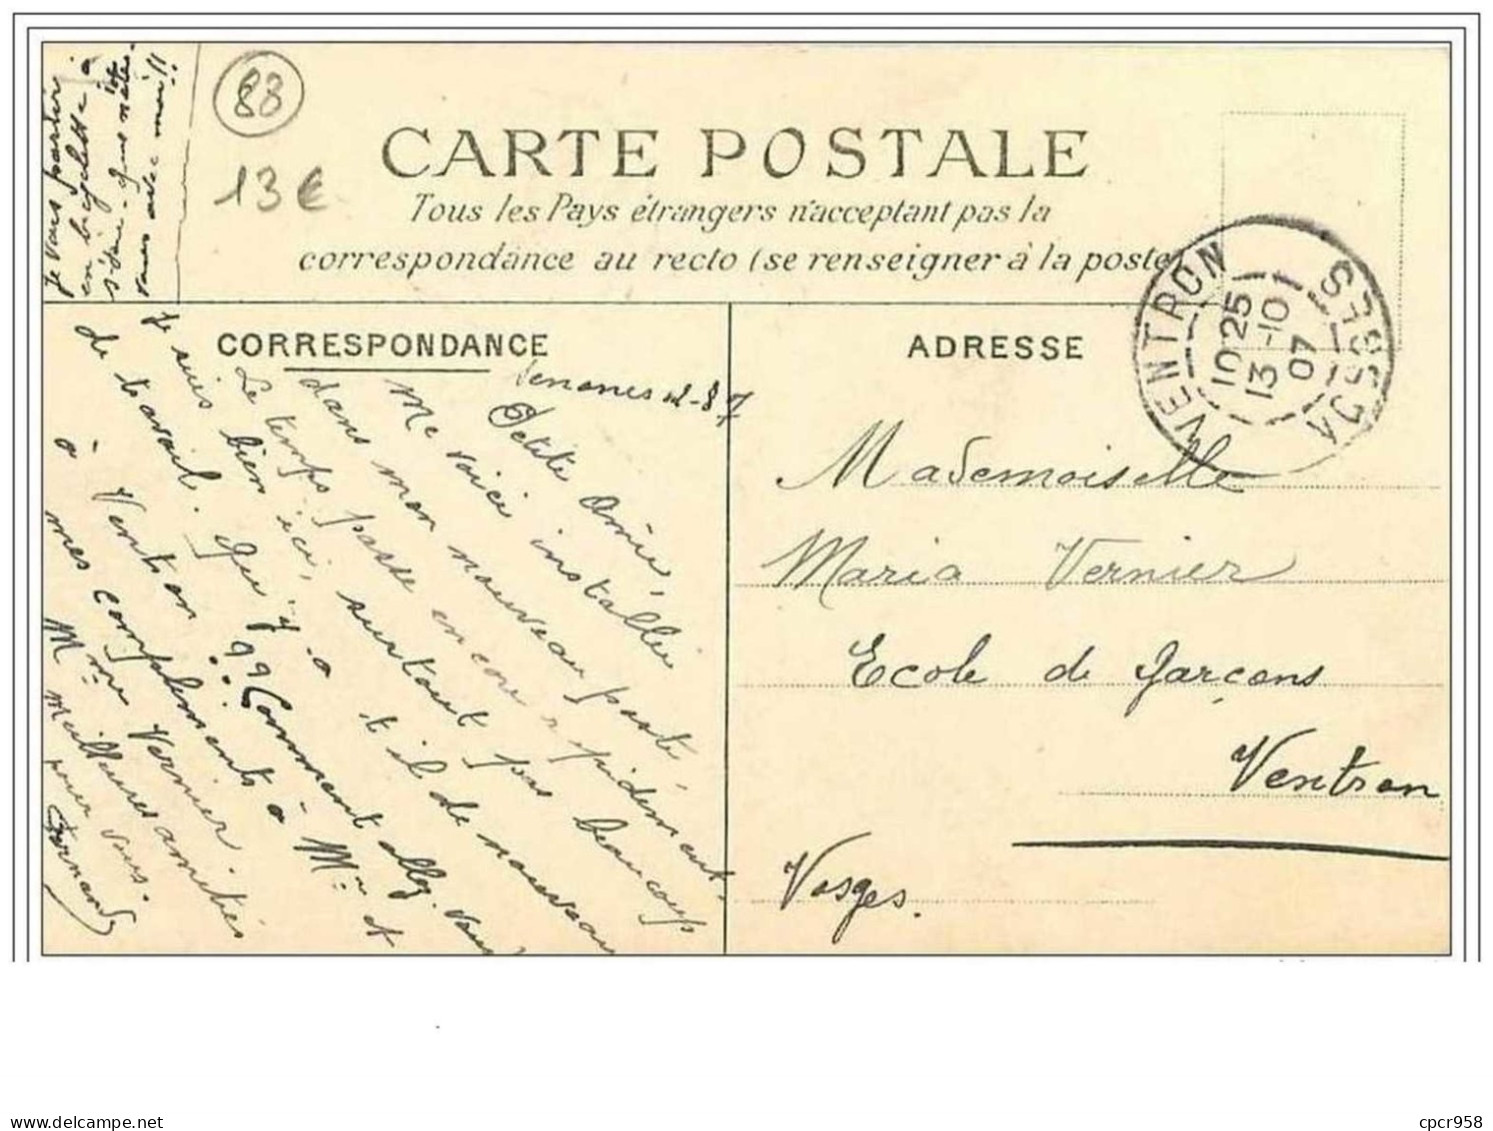 Je vais partir
en bicyclette à
vous avec moi !!
88
13€
CARTE POSTALE
Tous les Pays étrangers n'acceptant pas la
correspondance au recto (se renseigner à la poste)
VENTRON
VOSGES
10 25
13 -10
07
CORRESPONDANCE
ADRESSE
Petite Amie,
Me voici installée
dans mon nouveau poste.
Le temps passe encore rapidement.
Je suis bien ici, surtout pas beaucoup
de travail. Qu'y a t il de nouveau
à Ventron ?? Comment allez-vous
mes compliments à Mr et
Mme Vernier.
meilleures amitiés
pour vous.
Fernand
Mademoiselle
Maria Vernier
Ecole de garçons
Ventron
Vosges.
cpcr958